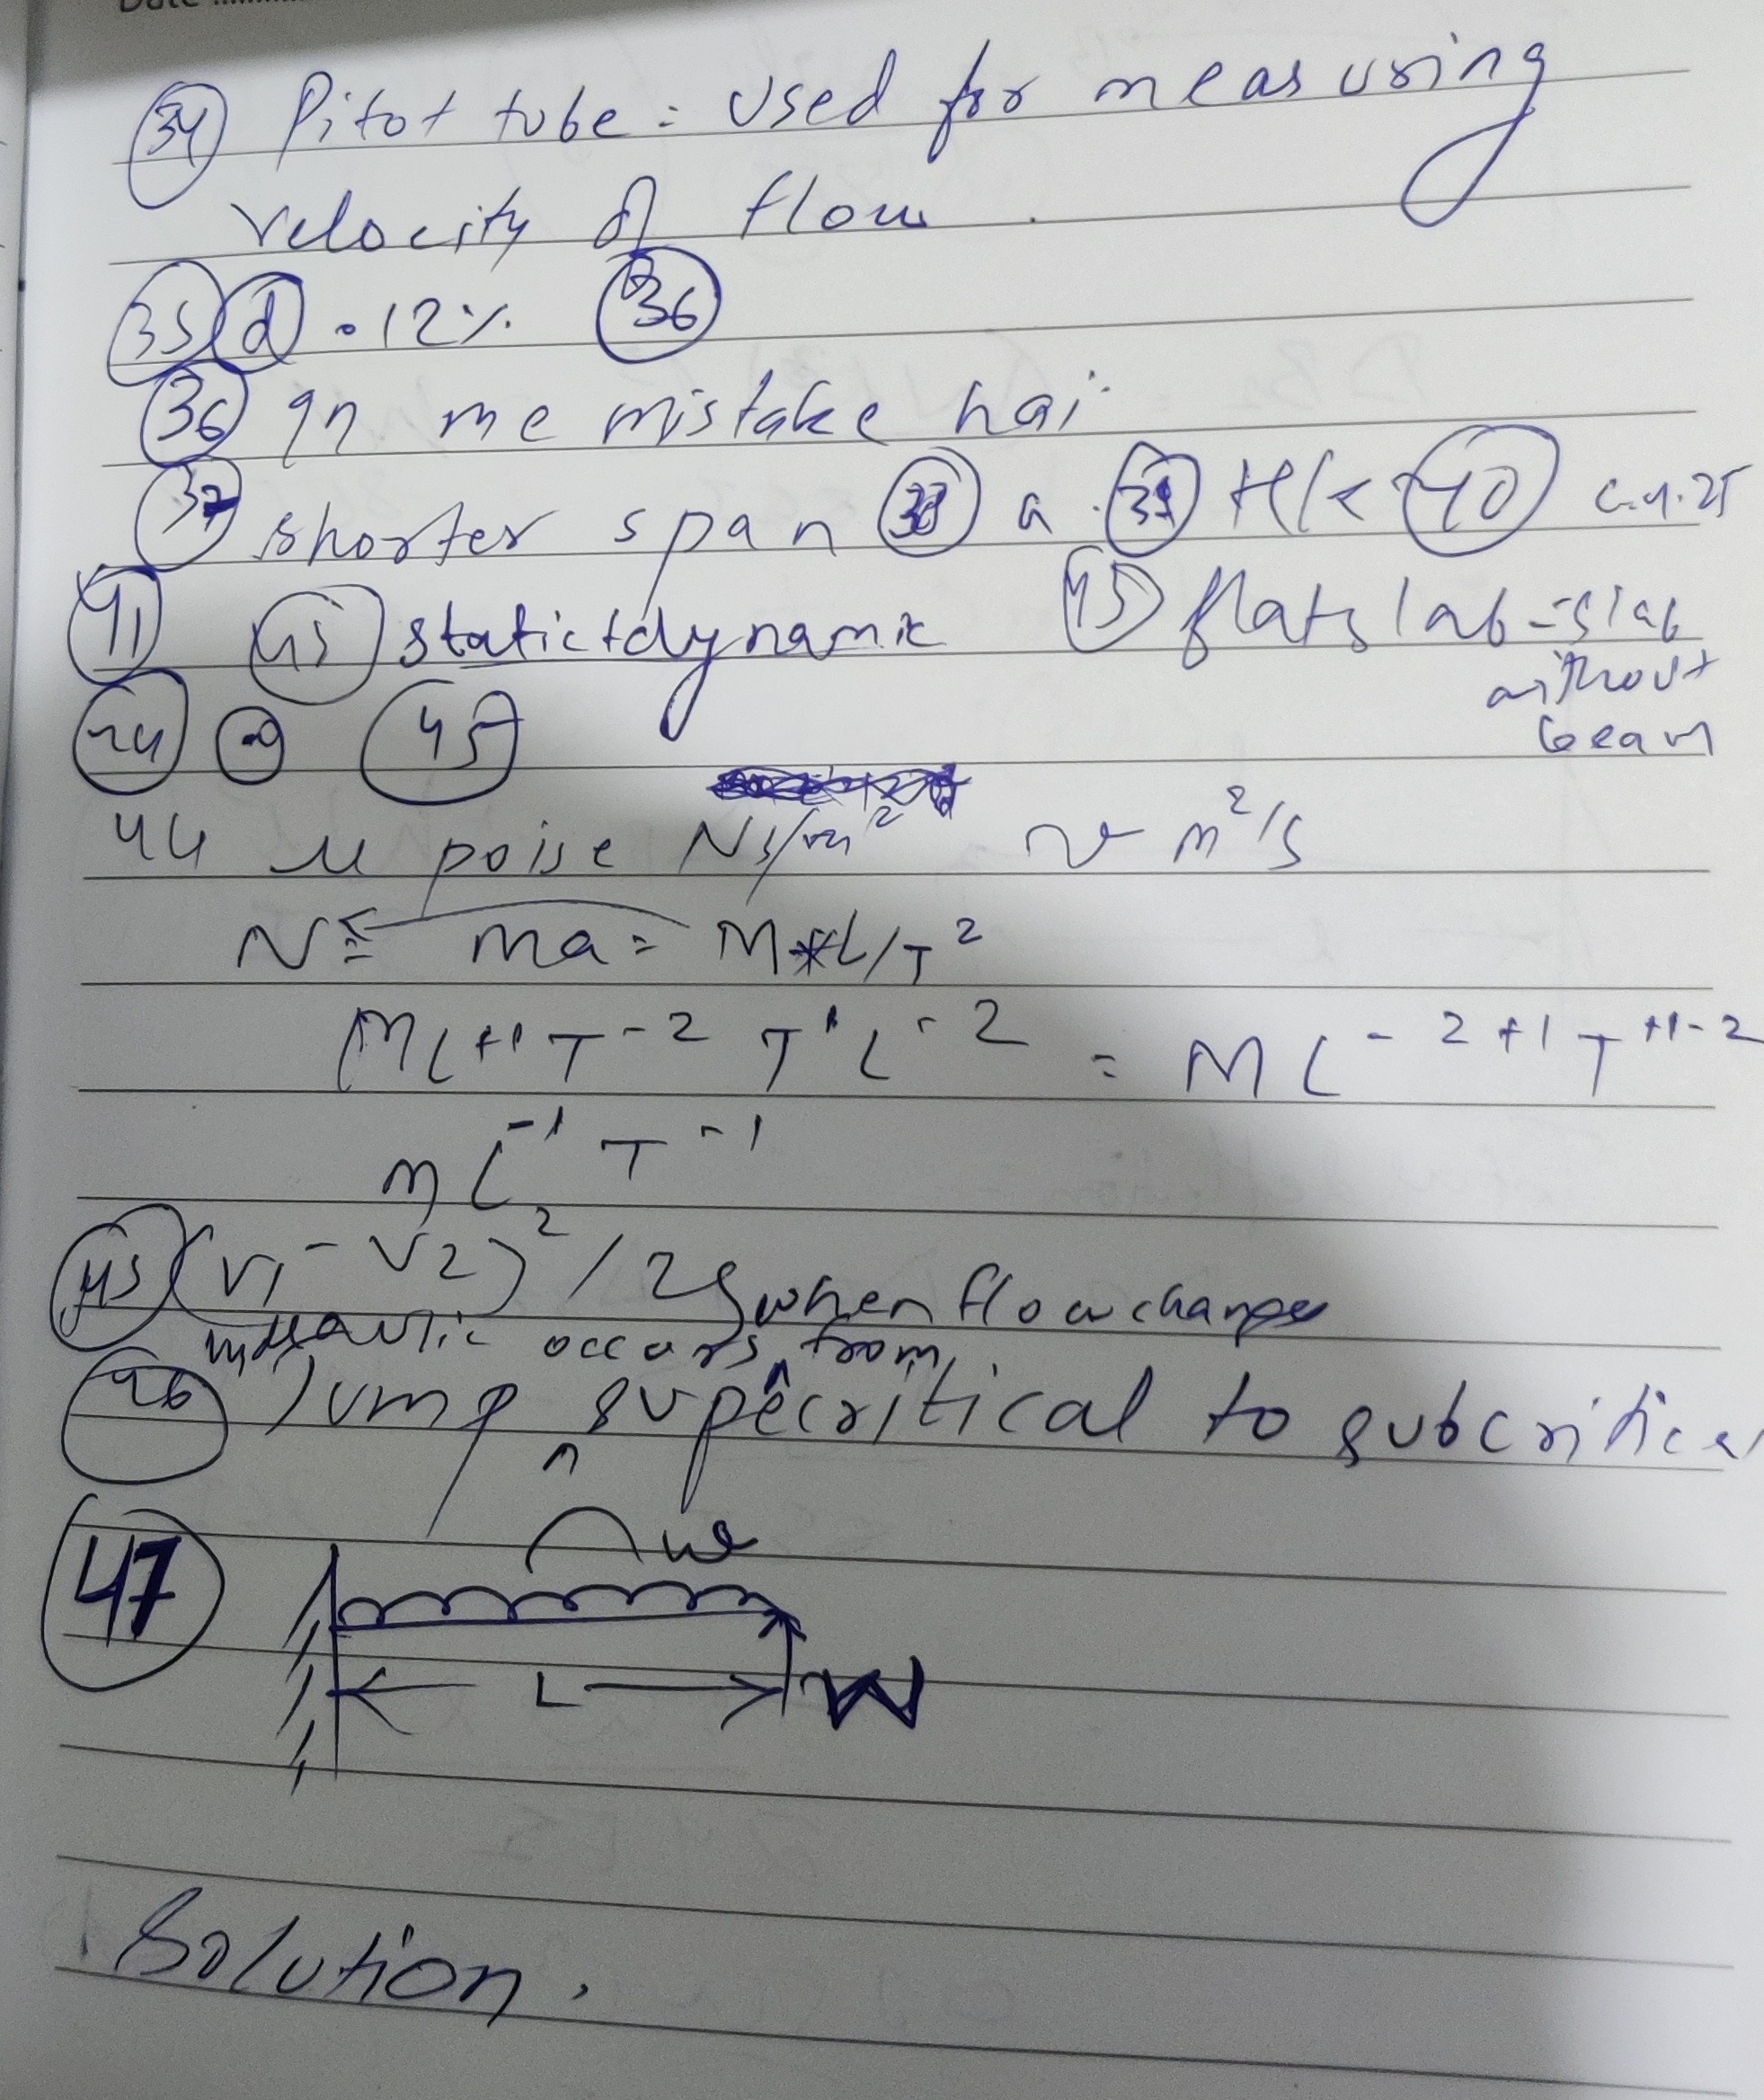 34 Pitot tube : Used for measuring
velocity of flow .
35 d . 12% 36
36 qn me mistake hai
37 shorter span 38 a . 39 H/< 40 c.y.25
41 static+dynamic 45 flat slab = slab
without
beam
45
44 μ poise Ns/m² ν m²/s
N = ma = M*L/T²
ML⁺¹ T⁻² T¹ L⁻² = M L⁻²⁺¹ T⁺¹⁻²
M L⁻¹ T⁻¹
45 (V1 - V2)² / 2g when flow change
occurs from
Jump supecritical to subcritical
47 w
L W
Solution .